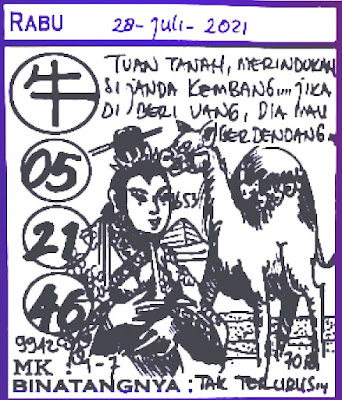 RABU 28-Juli-2021
牛
TUAN TANAH, MERINDUKAN
SI JANDA KEMBANG....JIKA
DI BERI UANG, DIA MAU
BERDENDANG...
05
1653
21
46
9942
MK : 1-7
BINATANGNYA : TAK TERURUS...